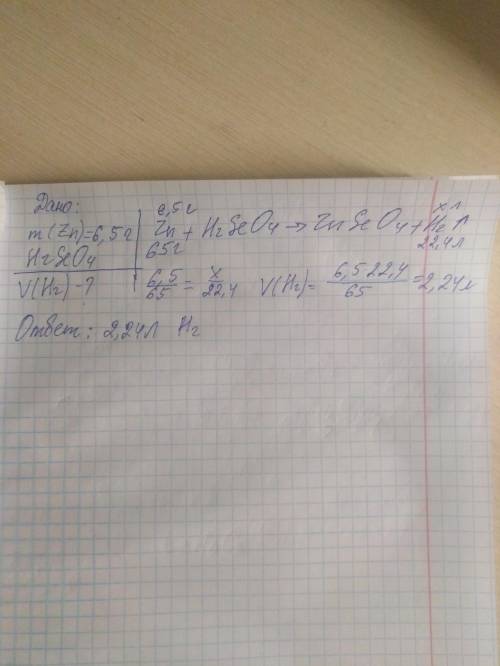 Дано:
m(Zn)=6,5г
H₂SeO₄
V(H₂)-?
6,5г x л
Zn + H₂SeO₄ → ZnSeO₄ + H₂↑
65г 22,4л
6,5/65 = x/22,4 V(H₂)= 6,5 22,4/65 =2,24л
Ответ: 2,24л H₂